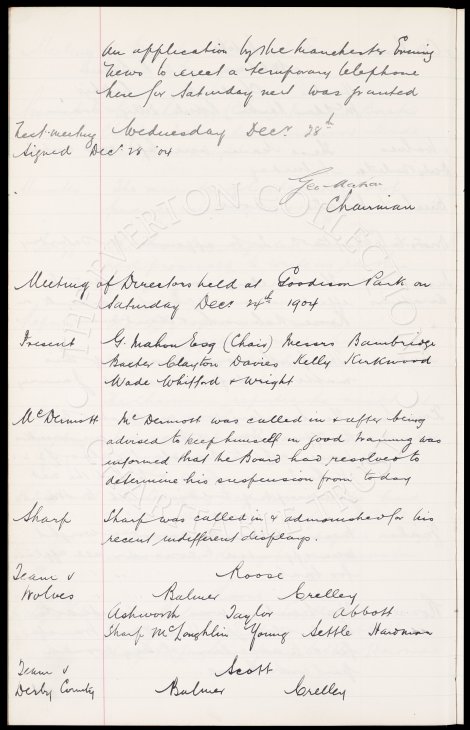 An application by the Manchester Evening
News to erect a temporary telephone
here for Saturday next was granted
Next meeting Wednesday Decr 28th
Signed Decr 28 '04
Geo Mahon
Chairman
Meeting of Directors held at Goodison Park on
Saturday Decr 24th 1904
Present G. Mahon Esq (Chair) Messrs Bainbridge
Baxter Clayton Davies Kelly Kirkwood
Wade Whitford & Wright
McDermott McDermott was called in & after being
advised to keep himself in good training was
informed that the Board had resolved to
determine his suspension from today
Sharp Sharp was called in & admonished for his
recent indifferent displays.
Team v Roose
Wolves Balmer Crelley
Ashworth Taylor Abbott
Sharp McLoughlin Young Settle Hardman
Team v Scott
Derby County Balmer Crelley
THE EVERTON COLLECTION